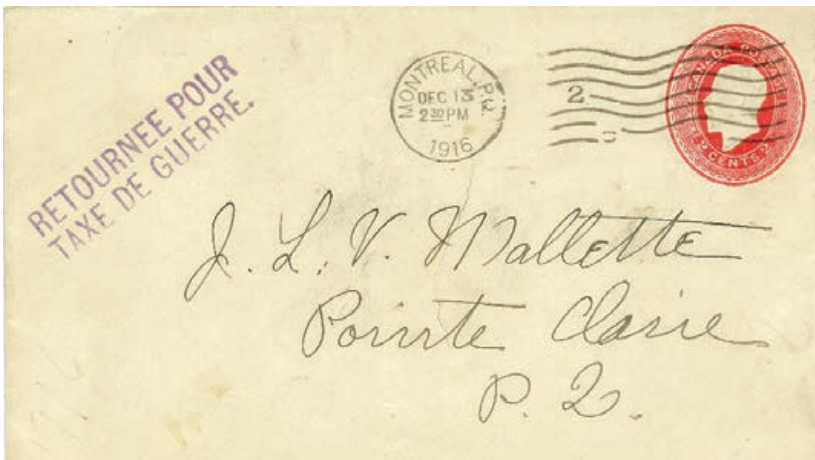 RETOURNEE POUR
TAXE DE GUERRE.
MONTREAL, P.Q.
DEC 13
2 30 PM
1916
2
CANADA POSTAGE
2 CENTS 2
J. L. V. Mallette
Pointe Claire
P. Q.